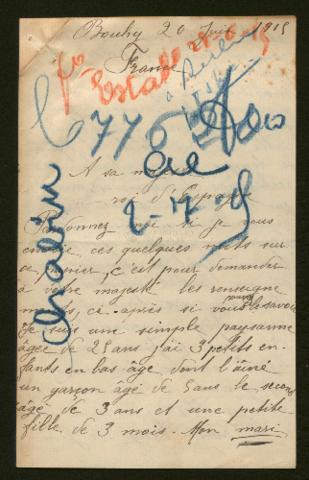 Bouhy 20 Juin 1915
France
A sa majesté
roi d'Espagne
Pardonnez moi si je vous
envoie ces quelques mots sur
ce papier, c'est pour demander
à votre majesté les renseigne
ments, ci-après si vous pouvez le savoir
Je suis une simple paysanne
âgée de 25 ans j'ai 3 petits en
fants en bas-âge dont l'aîné
un garçon âgé de 5 ans le second
âgé de 3 ans et une petite
fille de 3 mois. Mon mari
Chalin
8-7-15